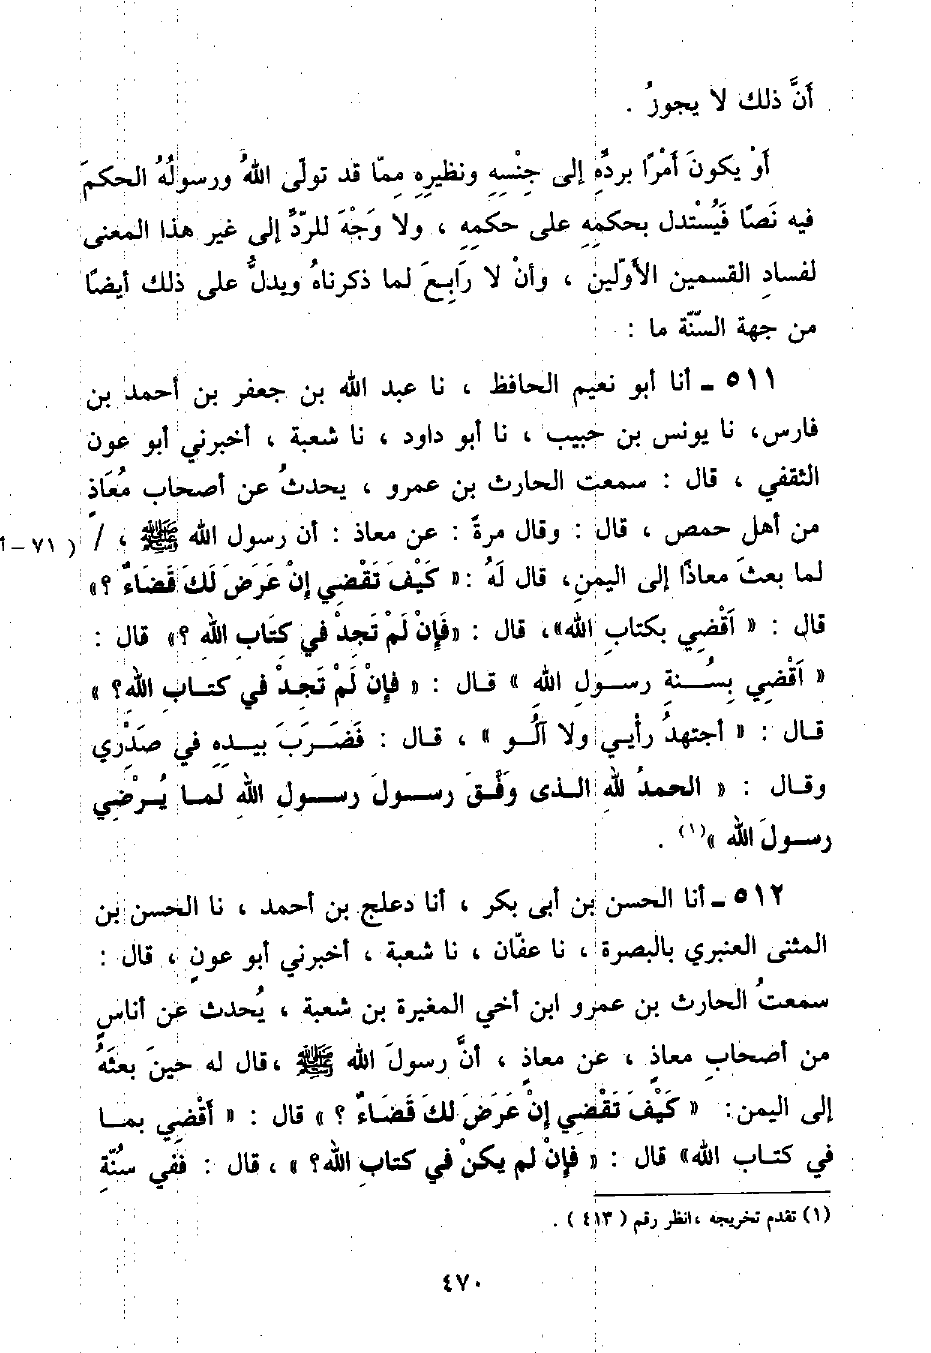 أَنَّ ذلك لا يجوزُ .
أَوْ يكونَ أَمْرًا بردِّهِ إلى جِنْسِهِ ونظيرِهِ مِمّا قد تولّى اللهُ ورسولُهُ الحكمَ
فيه نَصًا فَيُسْتدل بحكمِهِ على حكمِهِ ، ولا وَجْهَ للردِّ إلى غير هذا المعنى
لفسادِ القسمين الأَوّلين ، وأنْ لا رَابِعَ لما ذكرناهُ ويدلُّ على ذلك أيضًا
من جهة السنّة ما :
٥١١ ـ أنا أبو نعيم الحافظ ، نا عبد الله بن جعفر بن أحمد بن
فارس، نا يونس بن حبيب ، نا أبو داود ، نا شعبة ، أخبرني أبو عون
الثقفي ، قال : سمعت الحارث بن عمرو ، يحدثُ عن أصحاب مُعَاذٍ
من أهل حمص ، قال : وقال مرةً : عن معاذ : أن رسول الله ﷺ ، / ( ٧١ – أ
لما بعثَ معاذًا إلى اليمنِ، قال لَهُ : « كَيْفَ تَقْضِي إنْ عَرَضَ لَكَ قَضَاءٌ ؟»
قال : « اَقْضِي بكتابِ الله»، قال : «فَإنْ لَمْ تَجِدْ في كِتَابِ الله ؟» قال :
« اَقْضِي بِسُنةِ رسولِ اللهِ » قال : « فإنْ لَمْ تَجِدْ في كتابِ اللهِ؟ »
قال : « أجتهدُ رأيي ولا آلُو » ، قال : فَضَرَبَ بيدِهِ في صَدْرِي
وقال : « الحمدُ للهِ الذى وَفَّقَ رسولَ رسولِ اللهِ لما يُرْضِي
رسولَ الله »(١) .
٥١٢ ـ أنا الحسن بن أبى بكر ، أنا دعلج بن أحمد ، نا الحسن بن
المثنى العنبري بالبصرة ، نا عفّان ، نا شعبة ، أخبرني أبو عونٍ ، قال :
سمعتُ الحارث بن عمرو ابن أخي المغيرة بن شعبة ، يُحدث عن أناسٍ
من أصحابِ معاذٍ ، عن معاذٍ ، أنَّ رسولَ الله ﷺ ،قال له حينَ بعثَهُ
إلى اليمن: « كَيْفَ تَقْضِي إنْ عَرَضَ لكَ قَضَاءٌ ؟ » قال : « أَقْضِي بما
في كتاب الله» قال : « فإنْ لم يكنْ في كتابِ الله؟ » ، قال : فَفي سُنّةِ
(١) تقدم تخريجه ،انظر رقم ( ٤١٣ ) .
٤٧٠